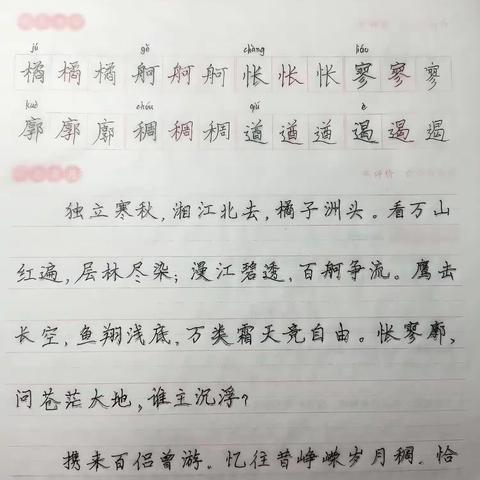 jú gě chàng liáo
橘橘橘舸舸舸怅怅怅寥寥寥
kuò chóu qiú è
廓廓廓稠稠稠遒遒遒遏遏遏
独立寒秋,湘江北去,橘子洲头。看万山
红遍,层林尽染;漫江碧透,百舸争流。鹰击
长空,鱼翔浅底,万类霜天竞自由。怅寥廓,
问苍茫大地,谁主沉浮?
携来百侣曾游。忆往昔峥嵘岁月稠。恰